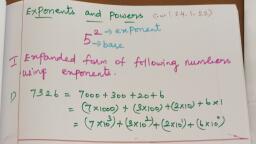 Exponents and Powers
5² → exponent
→ base
I Expanded form of following numbers
using exponents.
1) 7326 = 7000+300+20+6
= (7×1000) + (3×100) + (2×10) + 6×1
= (7×10³)+(3×10²)+(2×10¹)+(6×10⁰)